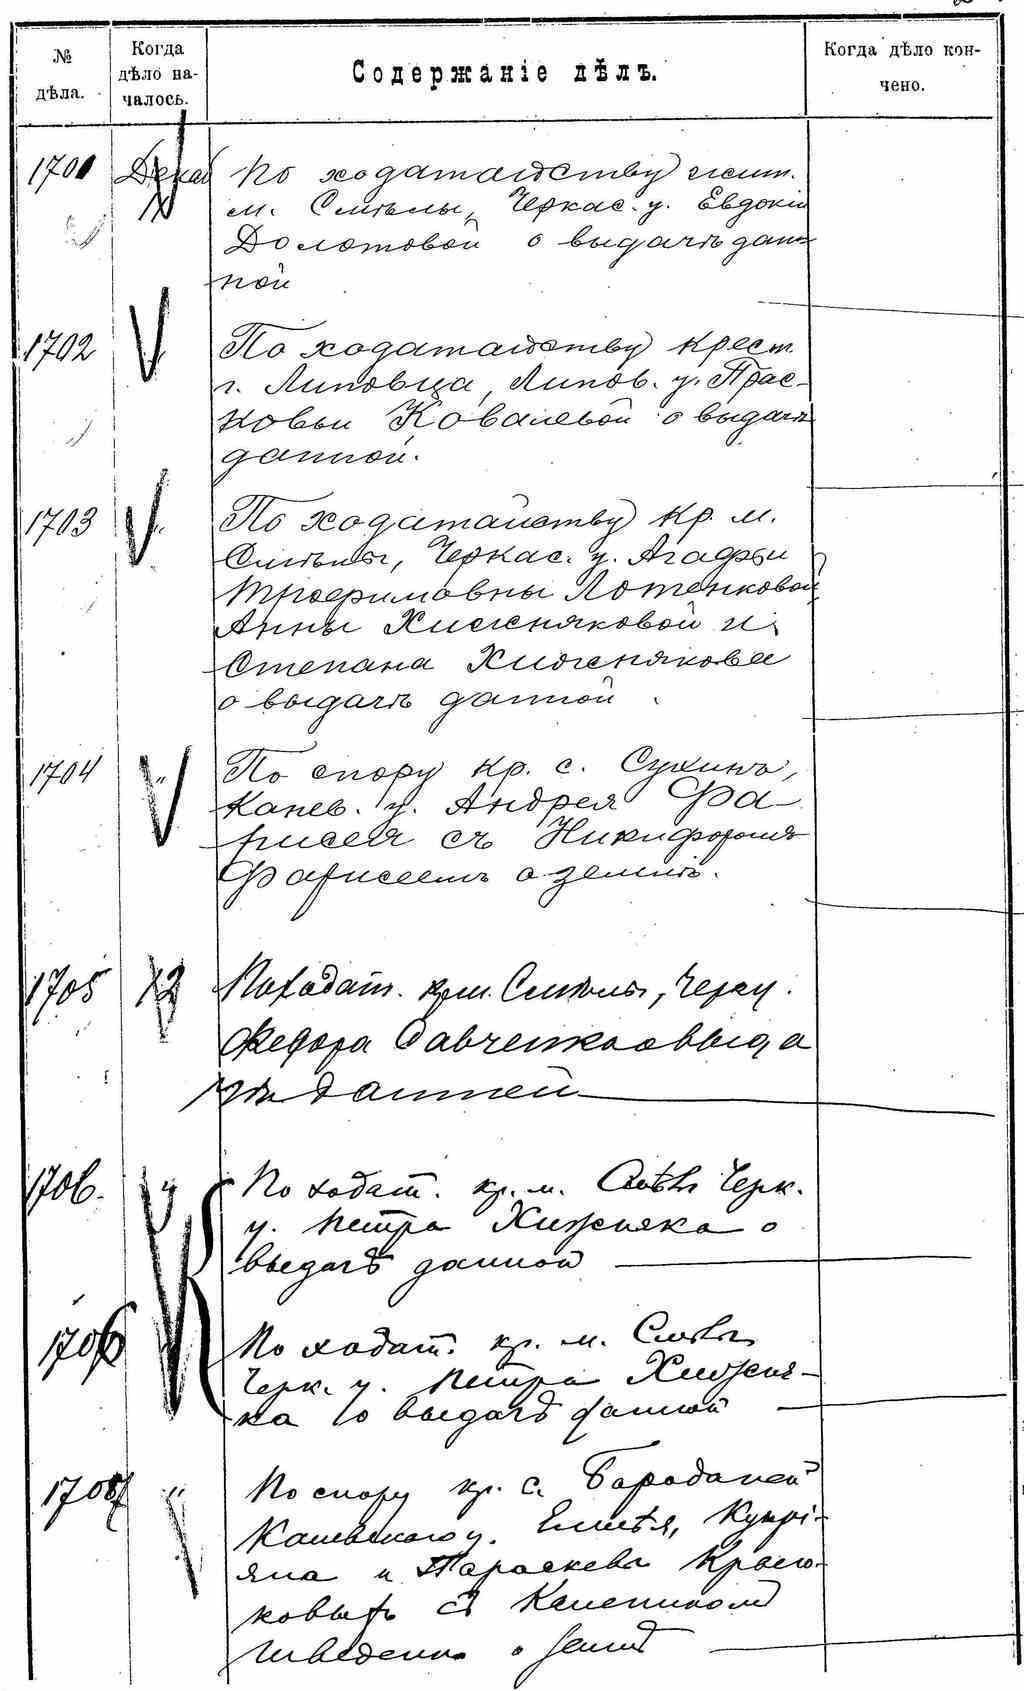 № дѣла.
Когда дѣло на-
чалось.
Содержаніе дѣлъ.
Когда дѣло кон-
чено.
1701 Декаб По ходатайству жит.
м. Смѣлы, Черкас. у. Евдокіи
Долотовой о выдачѣ дан-
ной
1702 " По ходатайству крест.
г. Липовца, Липов. у. Прас-
ковьи Ковалевой о выдачѣ
данной.
1703 " По ходатайству кр. м.
Смѣлы, Черкас. у. Агафьи
Трофимовны Лотенковой,
Анны Хижняковой и
Степана Хижнякова
о выдачѣ данной.
1704 " По спору кр. с. Сухинъ,
Канев. у. Андрея Фа-
рисея съ Никифоромъ
Фарисеемъ о землѣ.
1705 12 По ходат. кр. м. Смѣлы, Черк. у.
Федора Савченко о выда
чѣ данной
1706. " По ходат. кр. м. Смѣлы Черк.
у. Петра Хижняка о
выдачѣ данной
1706 " По ходат. кр. м. Смѣлы
Черк. у. Петра Хижня-
ка о выдачѣ данной
1707 " По спору кр. с. Бородани
Каневскаго у. Купрі-
яна и Параскевы Крью-
ковыхъ съ
о землѣ